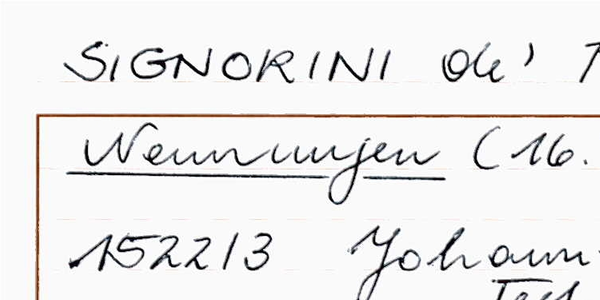 SIGNORINI de'
Nennungen (16.
1522/3 Johann